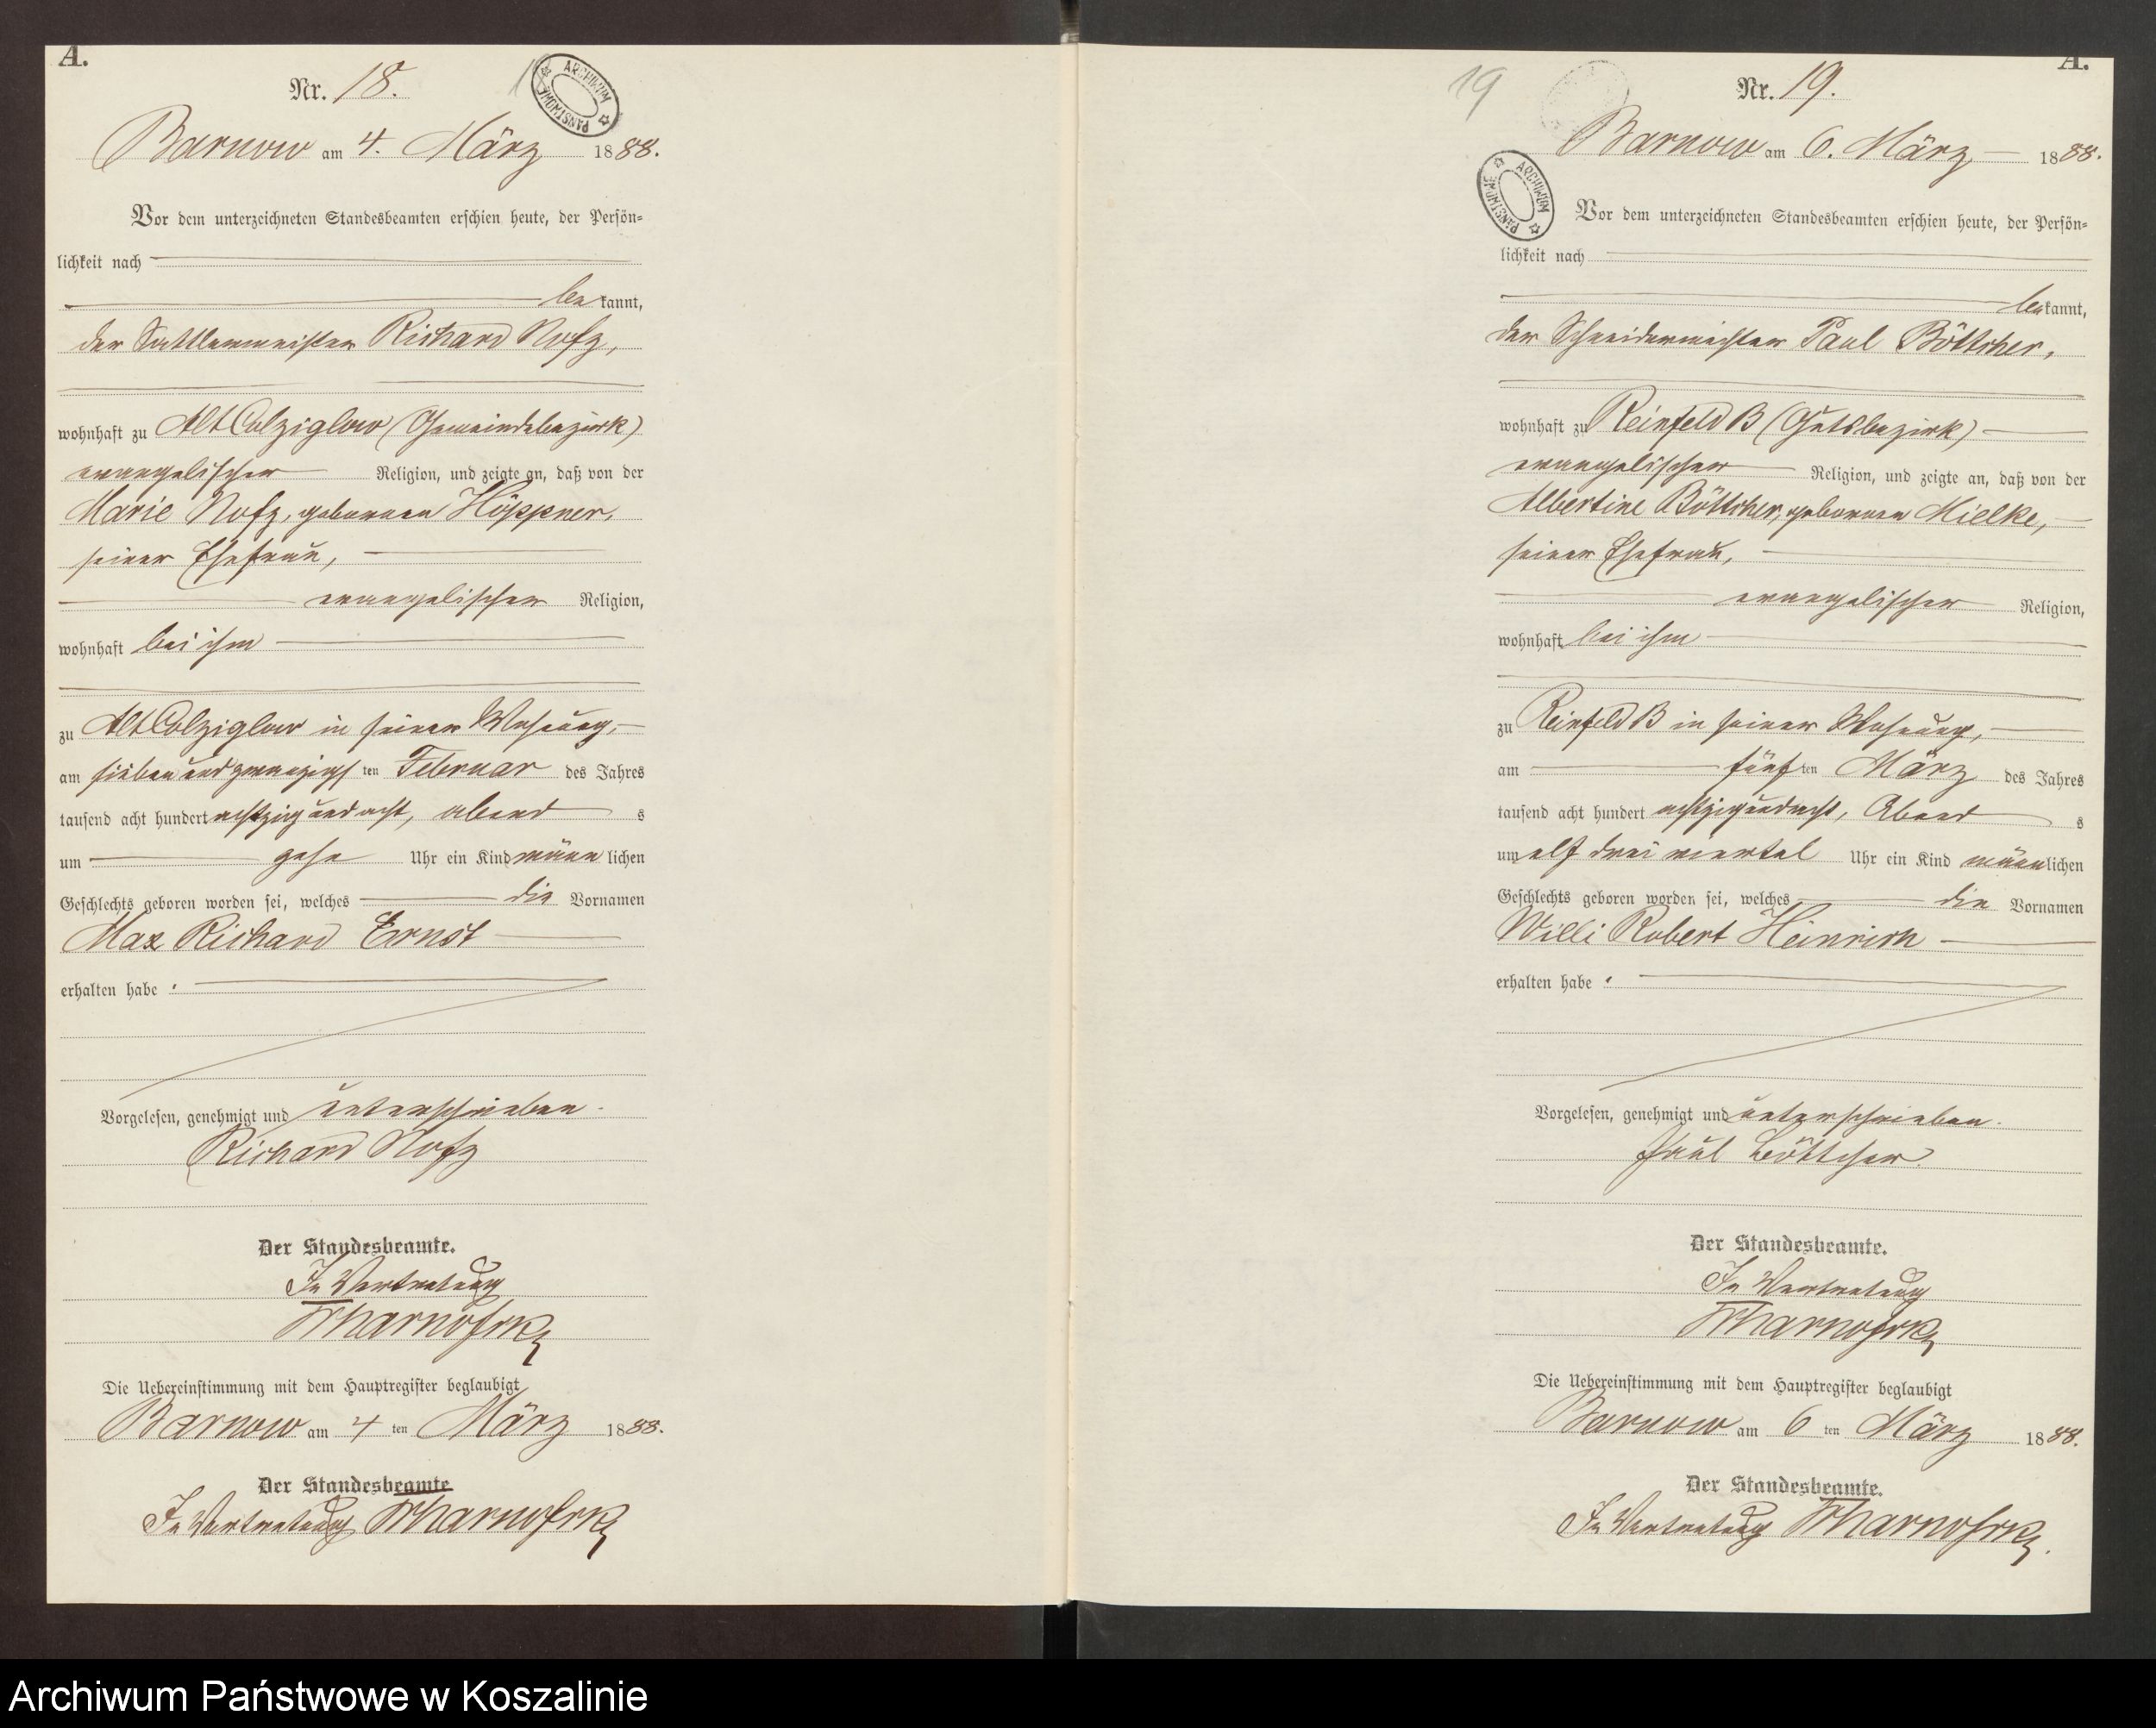 A.
Nr. 18.
ARCHIWUM PAŃSTWOWE
Barnow am 4. März 1888.
Vor dem unterzeichneten Standesbeamten erschien heute, der Persön=
lichkeit nach
bekannt,
der Sattlermeister Richard
wohnhaft zu Alt Colziglow (Gemeindebezirk)
evangelischer Religion, und zeigte an, daß von der
Marie geborenen Höppner,
seiner Ehefrau,
evangelischer Religion,
wohnhaft bei ihm
zu Alt Colziglow in seiner Wohnung,
am sieben und zwanzigsten Februar des Jahres
tausend acht hundert achtzig und acht, abends
um zehn Uhr ein Kind männlichen
Geschlechts geboren worden sei, welches die Vornamen
Max Richard Ernst
erhalten habe.
Vorgelesen, genehmigt und unterschrieben.
Richard
Der Standesbeamte.
In Vertretung
Die Uebereinstimmung mit dem Hauptregister beglaubigt
Barnow am 4ten März 1888.
Der Standesbeamte
In Vertretung
A.
19
Nr. 19.
ARCHIWUM PAŃSTWOWE
Barnow am 6. März 1888.
Vor dem unterzeichneten Standesbeamten erschien heute, der Persön=
lichkeit nach
bekannt,
der Schneidermeister Paul Böttcher,
wohnhaft zu Reinfeld B (Gutsbezirk)
evangelischer Religion, und zeigte an, daß von der
Albertine Böttcher, geborenen Mielke,
seiner Ehefrau,
evangelischer Religion,
wohnhaft bei ihm
zu Reinfeld B in seiner Wohnung,
am fünften März des Jahres
tausend acht hundert achtzig und acht, Abends
um elf drei viertel Uhr ein Kind männlichen
Geschlechts geboren worden sei, welches die Vornamen
Willi Robert Heinrich
erhalten habe.
Vorgelesen, genehmigt und unterschrieben.
Paul Böttcher.
Der Standesbeamte.
In Vertretung
Die Uebereinstimmung mit dem Hauptregister beglaubigt
Barnow am 6ten März 1888.
Der Standesbeamte.
In Vertretung
Archiwum Państwowe w Koszalinie